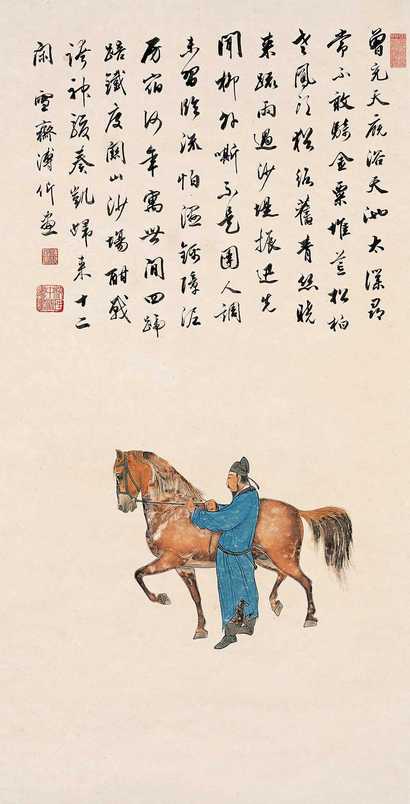 曾充天廄浴天池太液尋
常不敢騎金粟堆空松柏
老鳳頭猶絡舊青絲曉
來疏雨過沙堤振迅先
聞柳外嘶不是圉人調
未習臨流怕濕錦障泥
房宿何年寓世間四蹄
踣鐵度關山沙場酣戰
誇神駿奏凱歸來十二
閑 雪齋溥伒畫